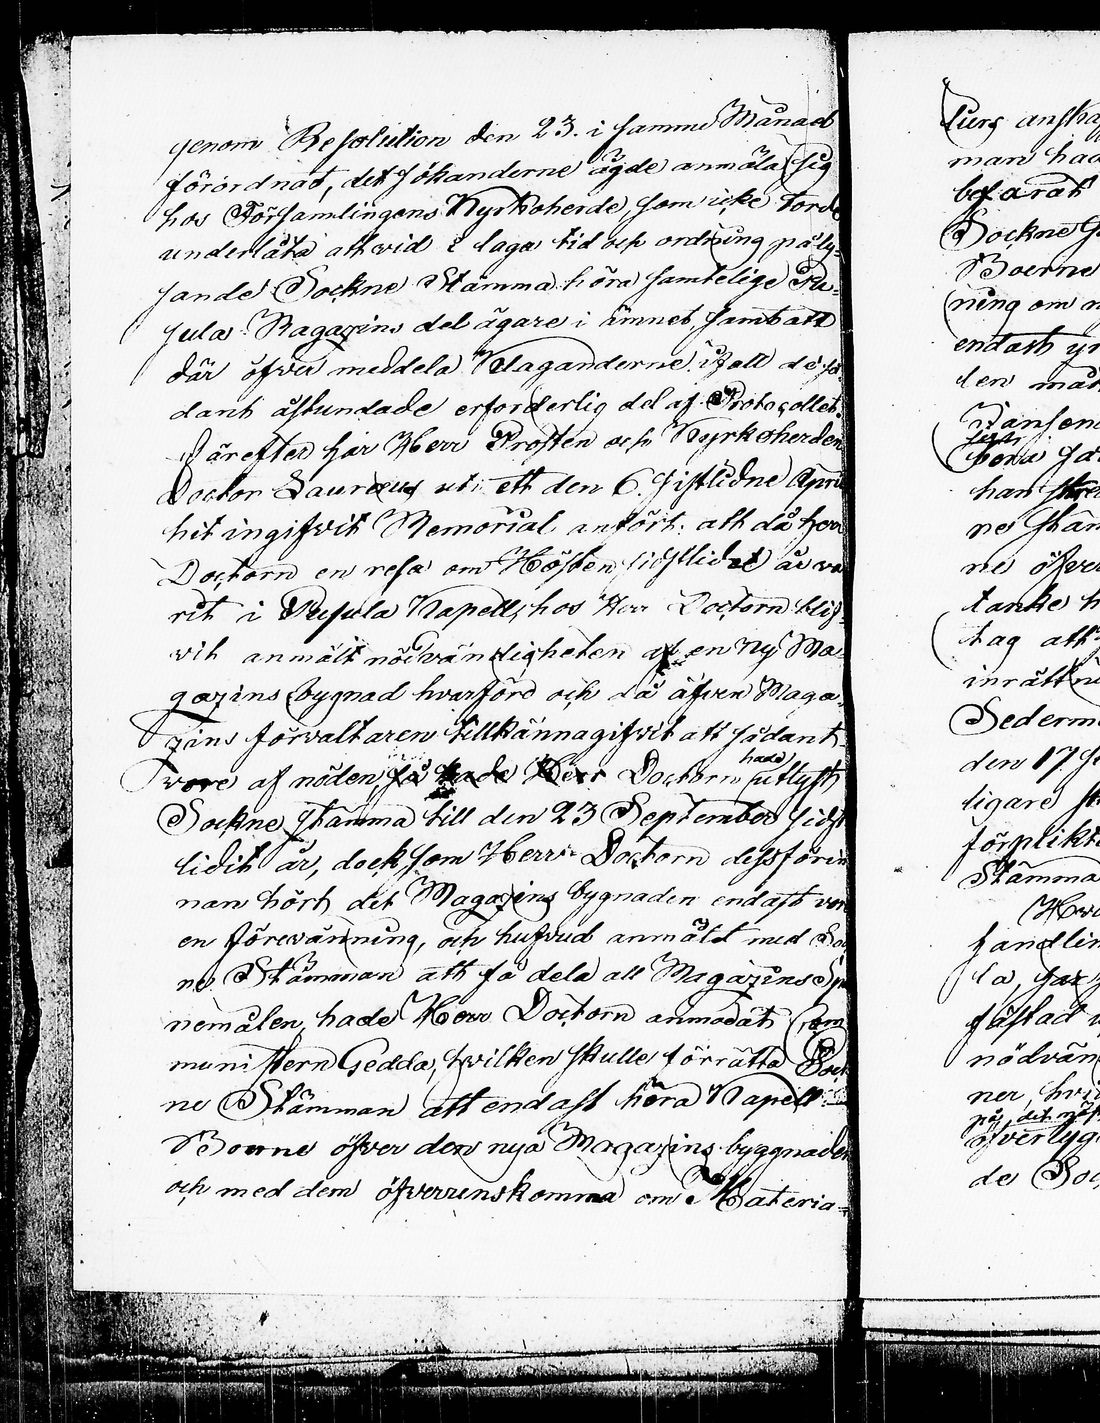 genom Resolution den 23. i samma Månad
förordnat, det sökanderne ägde anmäla sig
hos Församlingens Kyrkoherde, som icke torde
underlåta att vid i laga tid och ordning påly-
sande Sockne Stämma höra samtelige Pu-
sula Magazins delägare i ämnet, samt att
där öfver meddela Klaganderne ifall de så-
dant åstundade erforderlig del af Protocollet.
Härefter har Herr Prosten och Kyrkoherden
Doctor Lauræus uti ett den 6. sistlidne April
hit ingifvit Memorial anfört: att då Herr
Doctorn en resa om Hösten sidstlidet år va-
rit i Pusula Kapell, hos Herr Doctorn blif-
vit anmält nödvändigheten af en ny Ma-
gazins bygnad hvarförd och då äfven Maga-
zins förvaltaren tillkännagifvit att sådant
vore af nöden, så hade Herr Doctorn hade utlyst
Sockne Stämma till den 23 September sidst-
lidit år, dock som Herr Doctorn dessförin-
nan hört det Magazins bygnaden endast vore
en förevänning, och hufvud anmålet med Sock-
ne Stämman att få dela all Magazins Spa-
nemålen, hade Herr Doctorn anmodat Com-
ministern Gedda, hvilken skulle förrätta Sock-
ne Stämman att endast höra Kapell
Boerne öfver den nya Magazins byggnaden
och med dem öfverenskomma om Materia-
lurs anska
man had
befarat
Sockne
Boerne
ning om
endast
len
han
ne Stäm
ne öfver
tanke h
tag att
inrätt
Sederm
den 17
ligare
förplikt
Stämma
handlin
la,
fästad
nödvän
ner,
på, det
öfvertyg
de Soc